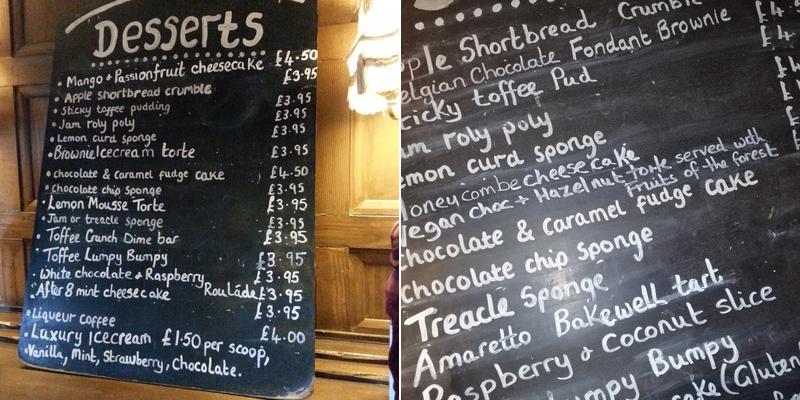 Desserts
Mango & Passionfruit cheesecake £4.50
Apple shortbread crumble £3.95
Sticky toffee pudding £3.95
Jam roly poly £3.95
Lemon curd sponge £3.95
Brownie Icecream torte £3.95
chocolate & caramel fudge cake £4.50
Chocolate chip sponge £3.95
Lemon Mousse Torte £3.95
Jam or treacle sponge £3.95
Toffee Crunch Dime bar £3.95
Toffee Lumpy Bumpy £3.95
White chocolate & Raspberry Roulade £3.95
After 8 mint cheesecake £3.95
£3.95
Liqueur coffee £4.00
Luxury Icecream £1.50 per scoop,
Vanilla, Mint, Strawberry, Chocolate.
ple Shortbread Crumble
elgian Chocolate Fondant Brownie £4
ticky toffee Pud
am roly poly
emon curd sponge
oney combe cheese cake
Vegan choc & Hazelnut torte served with
fruits of the forest
chocolate & caramel fudge cake
chocolate chip sponge
Treacle Sponge
Amaretto Bakewell tart
Raspberry & Coconut slice
umpy Bumpy
cake (Gluten